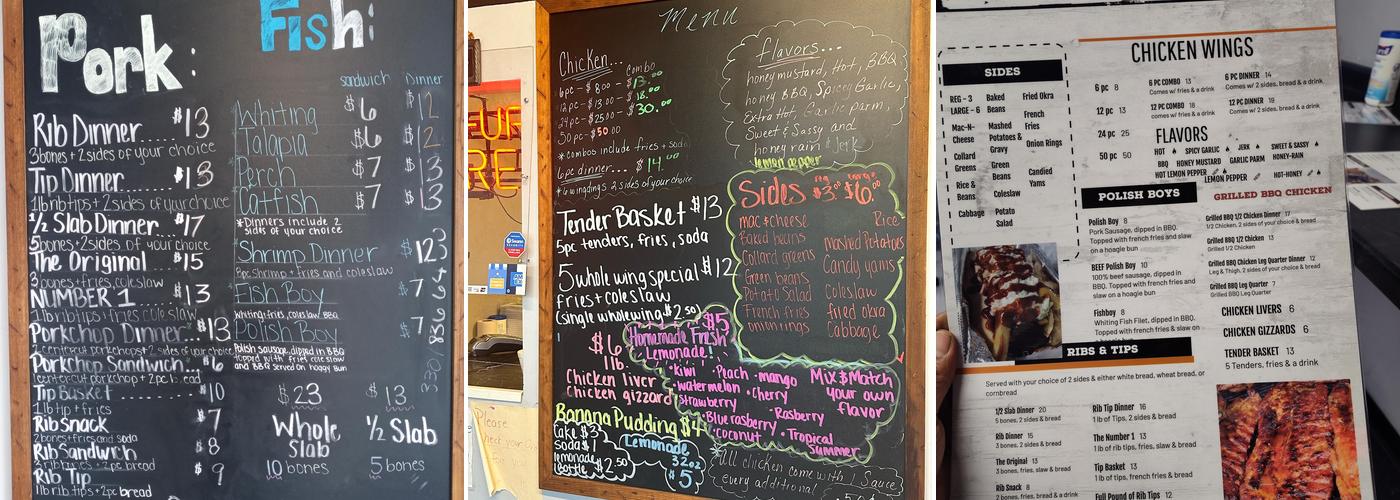 Pork:
Rib Dinner.... $13
3 bones + 2 sides of your choice
Tip Dinner...... $13
1 lb rib tips + 2 sides of your choice
1/2 Slab Dinner... $17
5 bones + 2 sides of your choice
The Original... $15
3 bones, fries, coleslaw
NUMBER 1 .... $13
1 lb rib tips + fries cole slaw
Porkchop Dinner... $13
2 centercut porkchops + 2 sides of your choice
Porkchop Sandwich... $6
1 centercut porkchop + 2pc bread
Tip Basket.......... $10
1 lb tip + fries
Rib Snack $7
2 bones + fries and soda
Rib Sandwich $8
2 rib bones + 2pc bread
Rib Tip $9
1 lb rib tips + 2pc bread
Fish:
sandwich Dinner
Whiting $6 $12
Talapia $6 $12
Perch $7 $13
Catfish $7 $13
*Dinners include 2
sides of your choice
Shrimp Dinner $12
8pc shrimp + fries and coleslaw
Fish Boy $7
whiting, fries, coleslaw, BBQ
Polish Boy $7
Polish sausage, dipped in BBQ
topped with fries coleslaw
and BBQ served on hoagy bun
$23 $13
Whole Slab 1/2 Slab
10 bones 5 bones
Menu
Chicken...
Combo
6pc - $8.00 - $13.00
12pc - $13.00 - $18.00
24pc - $25.00 - $30.00
50pc - $50.00
*combos include fries + soda
6pc dinner... $14.00
*6 wingdings 2 sides of your choice
Tender Basket $13
5pc tenders, fries, soda
5 whole wing special $12
fries + coleslaw
(single whole wing $2.50)
$6
1 lb.
Chicken liver
Chicken gizzard
Banana Pudding $4
Cake $3
Soda $1
lemonade
Bottle $2.50
Lemonade
32oz
$5
flavors...
honey mustard, Hot, BBQ
honey BBQ, Spicey Garlic,
Extra Hot, Garlic parm,
Sweet & Sassy and
honey rain + Jerk
lemon pepper
Sides $3.00 $6.00
mac + cheese Rice
Baked beans Mashed Potatoes
Collard greens Candy yams
Green beans Coleslaw
Potato Salad fried okra
French fries Cabbage
onion rings
$5
Homemade Fresh
Lemonade!
•Kiwi •Peach •mango
•watermelon •Cherry
strawberry •Rasberry
•Blue rasberry
•coconut •Tropical
Summer
Mix & Match
your own
flavor
*All chicken come with 1 Sauce
every additional
SIDES
REG - 3
LARGE - 6
Mac-N-
Cheese
Collard
Greens
Rice &
Beans
Cabbage
Baked
Beans
Mashed
Potatoes &
Gravy
Green
Beans
Coleslaw
Potato
Salad
Fried Okra
French
Fries
Onion Rings
Candied
Yams
CHICKEN WINGS
6 pc 8
6 PC COMBO 13
Comes w/ fries & a drink
6 PC DINNER 14
Comes w/ 2 sides, bread & a drink
12 pc 13
12 PC COMBO 18
Comes w/ fries & a drink
12 PC DINNER 19
Comes w/ 2 sides, bread & a drink
24 pc 25
50 pc 50
FLAVORS
HOT SPICY GARLIC JERK SWEET & SASSY
BBQ HONEY MUSTARD GARLIC PARM HONEY-RAIN
HOT LEMON PEPPER LEMON PEPPER HOT-HONEY
POLISH BOYS
Polish Boy 8
Pork Sausage, dipped in BBQ.
Topped with french fries and slaw
on a hoagie bun
BEEF Polish Boy 10
100% beef sausage, dipped in
BBQ. Topped with french fries and
slaw on a hoagie bun
Fishboy 8
Whiting Fish Filet, dipped in BBQ.
Topped with french fries & slaw on
GRILLED BBQ CHICKEN
Grilled BBQ 1/2 Chicken Dinner 17
1/2 Chicken, 2 sides of your choice & bread
Grilled BBQ 1/2 Chicken 13
Grilled 1/2 Chicken
Grilled BBQ Chicken Leg Quarter Dinner 12
Leg & Thigh, 2 sides of your choice & bread
Grilled BBQ Leg Quarter 7
Grilled BBQ Leg Quarter
CHICKEN LIVERS 6
CHICKEN GIZZARDS 6
TENDER BASKET 13
5 Tenders, fries & a drink
RIBS & TIPS
Served with your choice of 2 sides & either white bread, wheat bread, or
cornbread
1/2 Slab Dinner 20
5 bones, 2 sides & bread
Rib Dinner 15
3 bones, 2 sides & bread
The Original 13
3 bones, fries, slaw & bread
Rib Snack 8
Rib Tip Dinner 16
1 lb of Tips, 2 sides & bread
The Number 1 13
1 lb of tips, fries, slaw & bread
Tip Basket 13
1 lb of tips, french fries & bread
Full Pound of Rib Tips 12